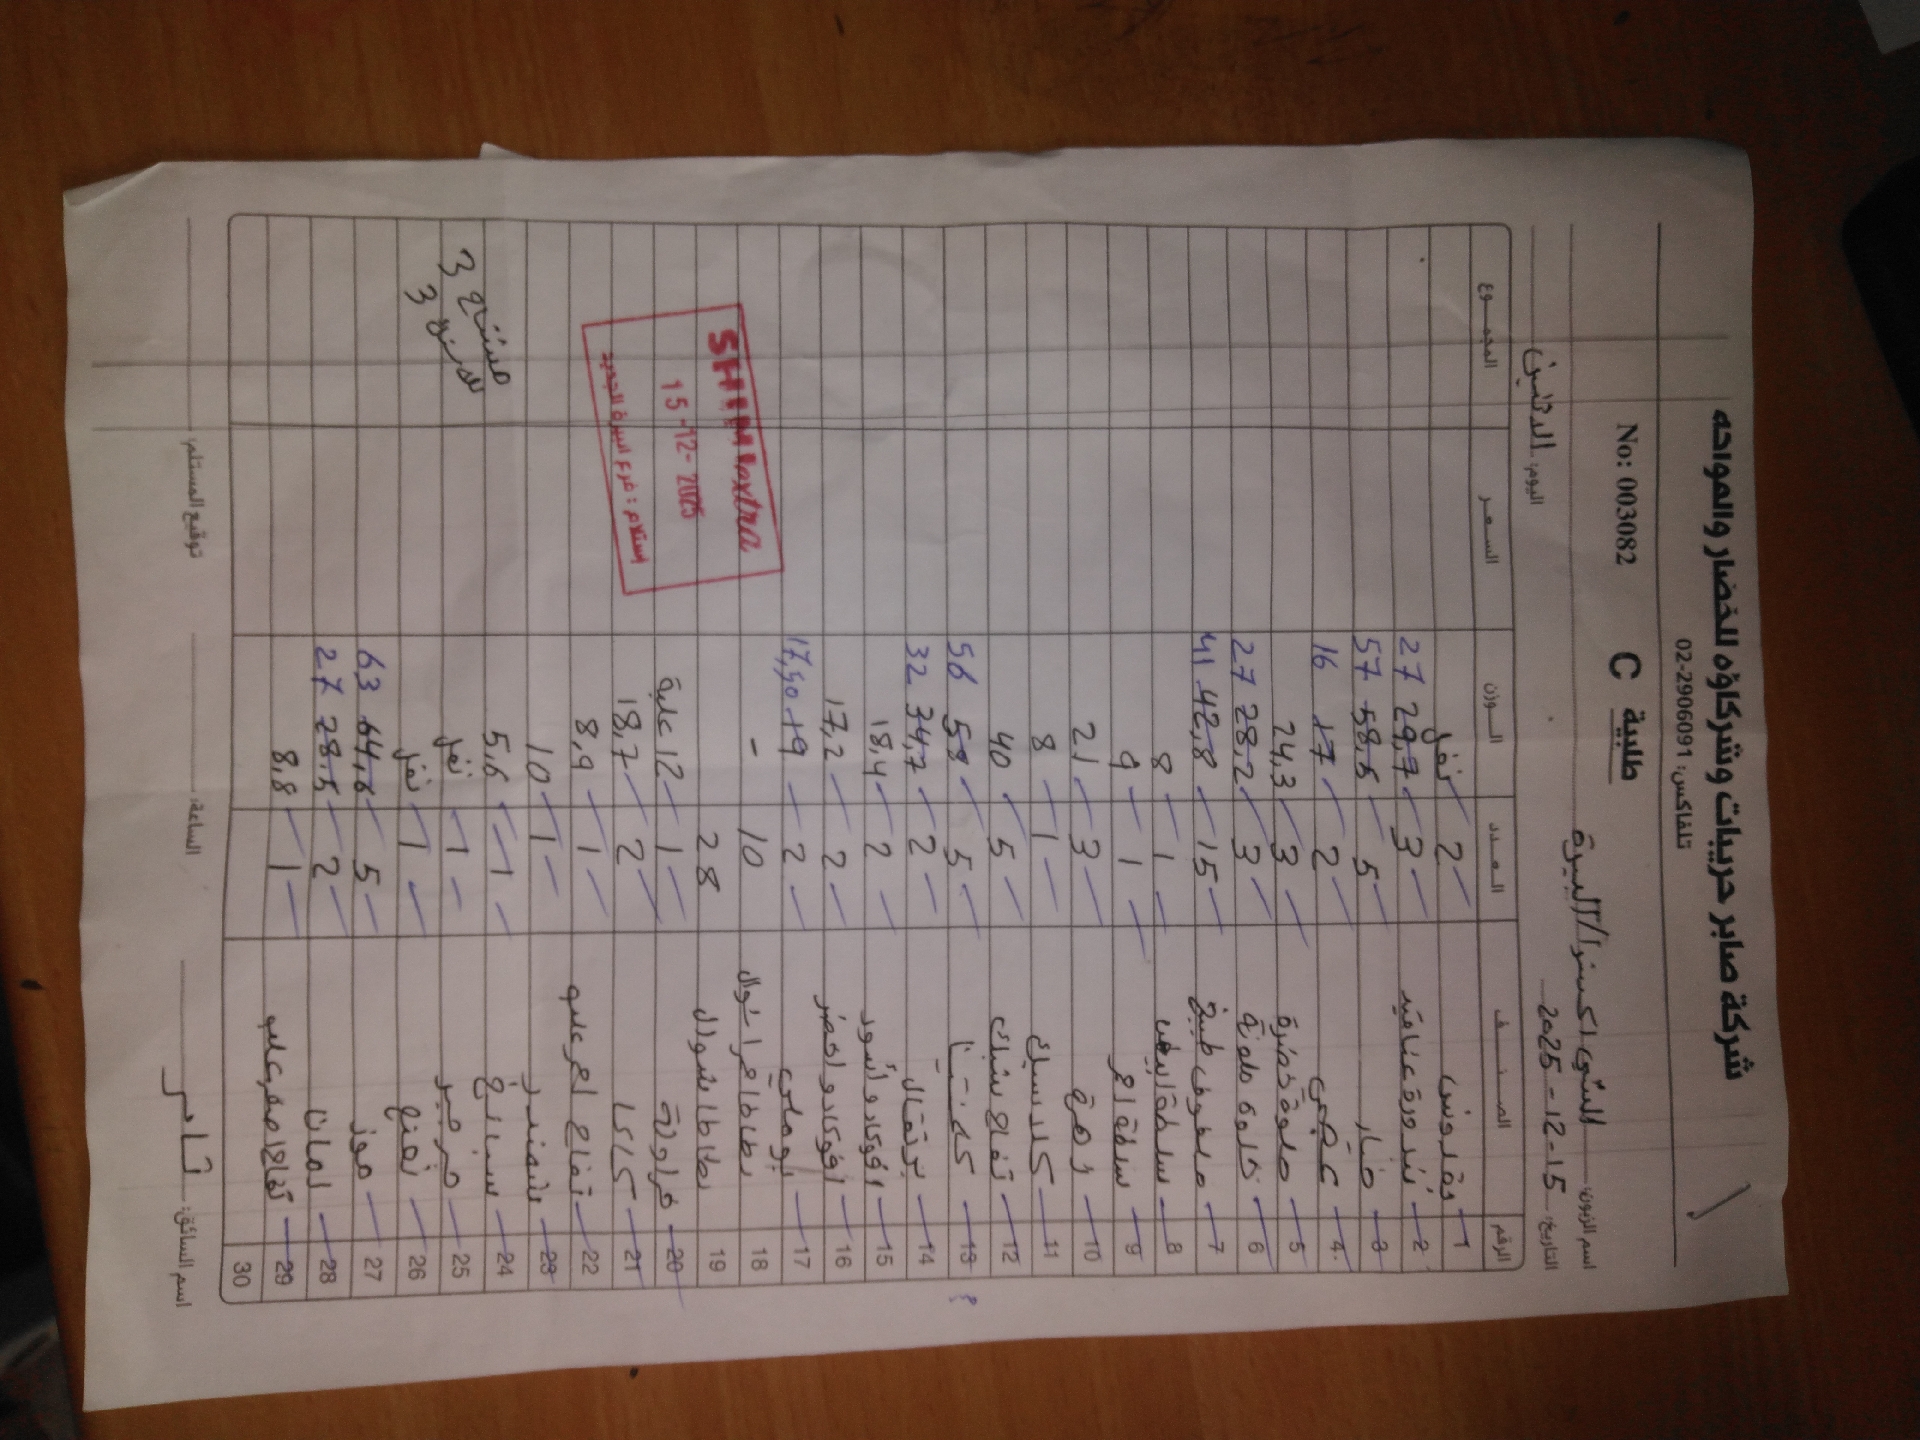 شركة صابر حريبات وشركاؤه للخضار والمواحه
تلفاكس: 02-2906091
No: 003082 طلبية C
اسم الزبون: الشني اكسترا/البيرة
التاريخ: 15-12-2025 اليوم: الاثنين
الرقم الصنف العدد الوزن السعر المجموع
1 بقدونس 2 نفل
2 بندورة عناقيد 3 29,7 27
3 خيار 5 58,5 57
4 2 17 16
5 حلوة خضرة 3 24,3
6 3 28,2 27
7 ملفوف طبيخ 15 42,8 41
8 ملفوف ابيض 1 8
9 1 9
10 زهرة 3 21
11 1 8
12 تفاح سكري 5 40
13 5 58 56
14 برتقال 2 34,7 32
15 افوكادو اسود 2 18,4
16 افوكادو اخضر 2 17,2
17 بوملي 2 19 17,50
18 بطاطا حمرا شوال 10 -
19 بطاطا شوال 28
20 فراولة 1 12 علبة
21 كاكا 2 18,7
22 تفاح احمر علبه 1 8,9
23 شمندر 1 10
24 سبانخ 1 5,6
25 جرجير 1 نفل
26 نعنع 1 نفل
27 موز 5 64,6 63
28 2 28,5 27
29 تفاح اصفر علبه 1 8,8
30
SHINI extra
15-12-2025
استلام : فرع البيرة الجديد
3
3
اسم السائق: ثامر الساعة: توقيع المستلم: